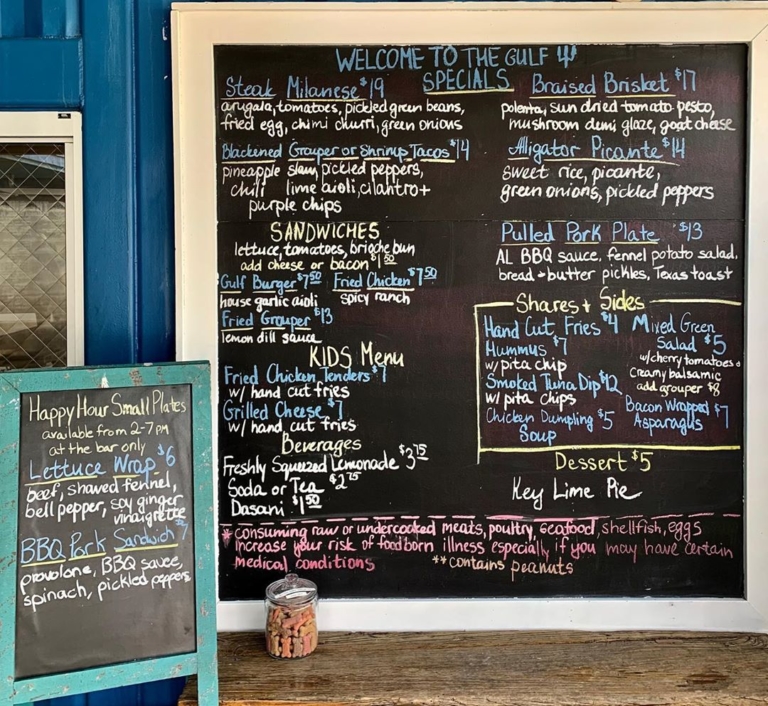 WELCOME TO THE GULF
SPECIALS
Steak Milanese $19
arugala, tomatoes, pickled green beans,
fried egg, chimi churri, green onions
Blackened Grouper or Shrimp Tacos $14
pineapple slaw, pickled peppers,
chili lime aioli, cilantro +
purple chips
Braised Brisket $17
polenta, sun dried tomato pesto,
mushroom demi glaze, goat cheese
Alligator Picante $14
sweet rice, picante,
green onions, pickled peppers
SANDWICHES
lettuce, tomatoes, brioche bun
add cheese or bacon $1.50
Gulf Burger $7.50 Fried Chicken $7.50
house garlic aioli spicy ranch
Fried Grouper $13
lemon dill sauce
KIDS Menu
Fried Chicken Tenders $7
w/ hand cut fries
Grilled Cheese $7
w/ hand cut fries
Beverages
Freshly Squeezed Lemonade $3.75
Soda or Tea $2.75
Dasani $1.50
Pulled Pork Plate $13
AL BBQ sauce, fennel potato salad,
bread + butter pickles, Texas toast
Shares + Sides
Hand Cut Fries $4
Hummus $7
w/ pita chip
Smoked Tuna Dip $12
w/ pita chips
Chicken Dumpling $5
Soup
Mixed Green
Salad $5
w/cherry tomatoes +
creamy balsamic
add grouper $8
Bacon Wrapped $7
Asparagus
Dessert $5
Key Lime Pie
* consuming raw or undercooked meats, poultry, seafood, shellfish, eggs
increase your risk of foodborn illness especially if you may have certain
medical conditions **contains peanuts
Happy Hour Small Plates
available from 2-7 PM
at the bar only
Lettuce Wrap $6
beef, shaved fennel,
bell pepper, soy ginger
vinaigrette
BBQ Pork Sandwich $7
provolone, BBQ sauce,
spinach, pickled peppers